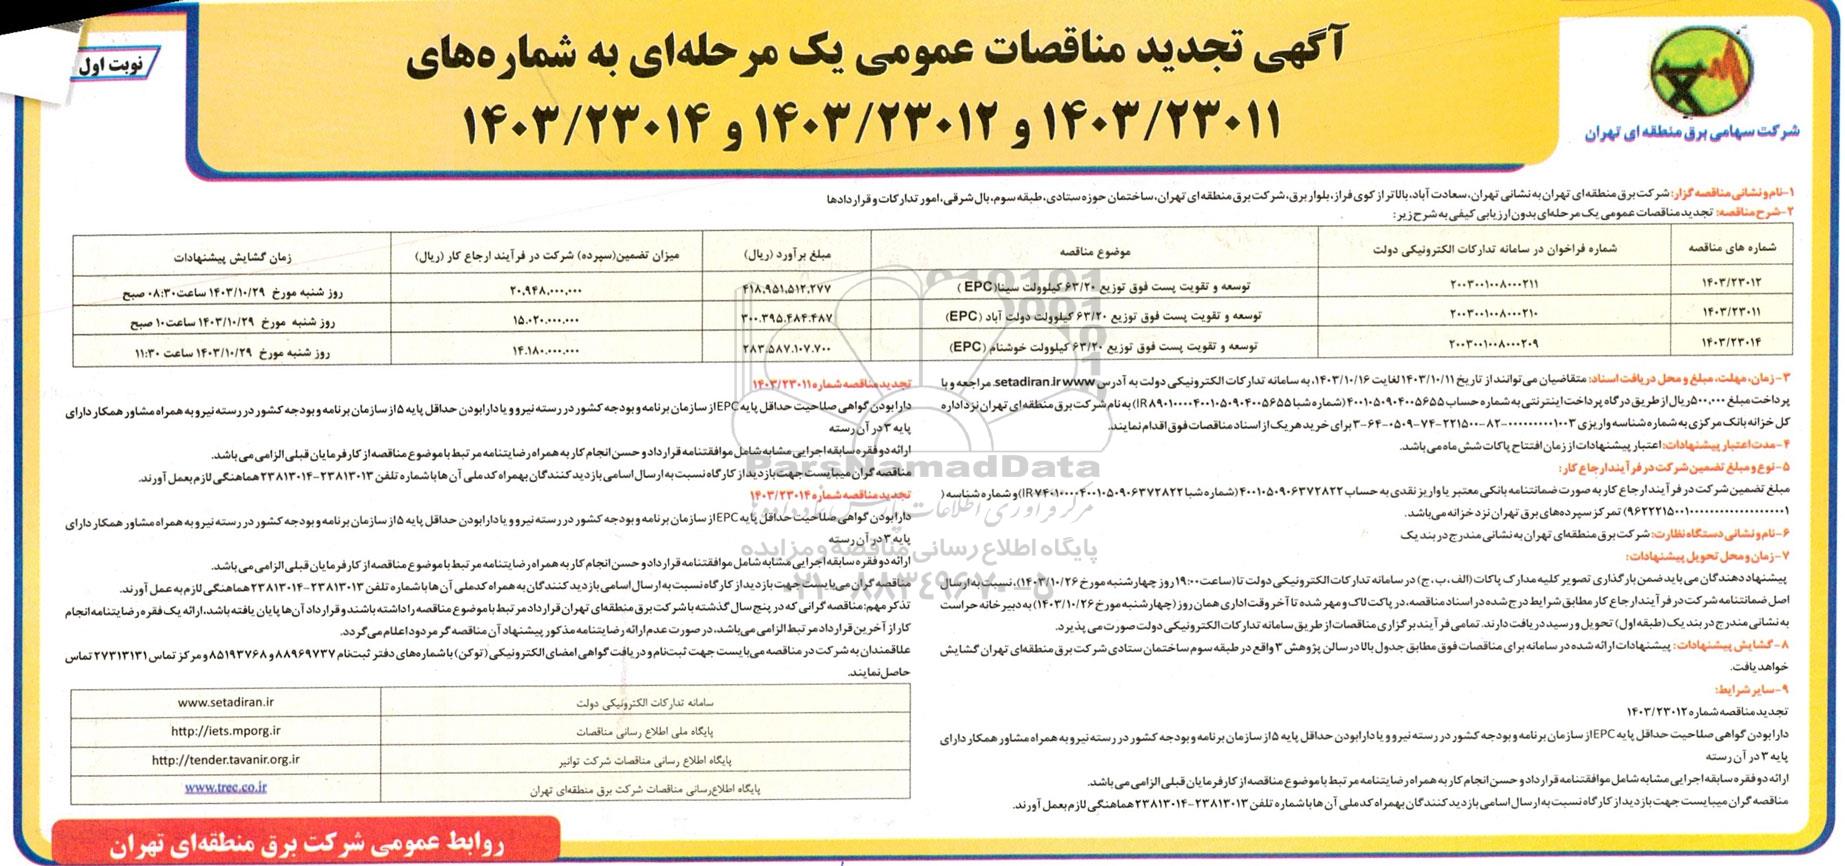 نوبت اول
آگهی تجدید مناقصات عمومی یک مرحله‌ای به شماره‌های
۱۴۰۳/۲۳۰۱۱ و ۱۴۰۳/۲۳۰۱۲ و ۱۴۰۳/۲۳۰۱۴
شرکت سهامی برق منطقه ای تهران
۱-نام و نشانی مناقصه گزار: شرکت برق منطقه ای تهران به نشانی تهران، سعادت آباد، بالاتر از کوی فراز، بلوار برق، شرکت برق منطقه ای تهران، ساختمان حوزه ستادی، طبقه سوم، بال شرقی، امور تدارکات و قراردادها
۲-شرح مناقصه: تجدید مناقصات عمومی یک مرحله‌ای بدون ارزیابی کیفی به شرح زیر:
شماره های مناقصه | شماره فراخوان در سامانه تدارکات الکترونیکی دولت | موضوع مناقصه | مبلغ برآورد (ریال) | میزان تضمین(سپرده) شرکت در فرآیند ارجاع کار (ریال) | زمان گشایش پیشنهادات
۱۴۰۳/۲۳۰۱۲ | ۲۰۰۳۰۰۱۰۰۸۰۰۰۲۱۱ | توسعه و تقویت پست فوق توزیع ۶۳/۲۰ کیلوولت سینا( EPC ) | ۴۱۸,۹۵۱,۵۱۲,۲۷۷ | ۲۰,۹۴۸,۰۰۰,۰۰۰ | روز شنبه مورخ ۱۴۰۳/۱۰/۲۹ ساعت ۰۸:۳۰ صبح
۱۴۰۳/۲۳۰۱۱ | ۲۰۰۳۰۰۱۰۰۸۰۰۰۲۱۰ | توسعه و تقویت پست فوق توزیع ۶۳/۲۰ کیلوولت دولت آباد (EPC) | ۳۰۰.۳۹۵.۴۸۴.۴۸۷ | ۱۵.۰۲۰.۰۰۰.۰۰۰ | روز شنبه مورخ ۱۴۰۳/۱۰/۲۹ ساعت ۱۰ صبح
۱۴۰۳/۲۳۰۱۴ | ۲۰۰۳۰۰۱۰۰۸۰۰۰۲۰۹ | توسعه و تقویت پست فوق توزیع ۶۳/۲۰ کیلوولت خوشنام (EPC) | ۲۸۳.۵۸۷.۱۰۷.۷۰۰ | ۱۴.۱۸۰.۰۰۰.۰۰۰ | روز شنبه مورخ ۱۴۰۳/۱۰/۲۹ ساعت ۱۱:۳۰
۳- زمان، مهلت، مبلغ و محل دریافت اسناد: متقاضیان می‌توانند از تاریخ ۱۴۰۳/۱۰/۱۱ لغایت ۱۴۰۳/۱۰/۱۶، به سامانه تدارکات الکترونیکی دولت به آدرس www.setadiran.ir مراجعه و با
پرداخت مبلغ ۵۰۰,۰۰۰ ریال از طریق درگاه پرداخت اینترنتی به شماره حساب ۴۰۰۱۰۵۰۹۰۴۰۰۵۶۵۵ (شماره شبا IR۸۹۰۱۰۰۰۰۴۰۰۱۰۵۰۹۰۴۰۰۵۶۵۵) به نام شرکت برق منطقه‌ای تهران نزد اداره
کل خزانه بانک مرکزی به شماره شناسه واریزی ۳-۶۴-۰۵۰۹-۷۴-۲۲۱۵۰۰-۸۲-۰۰۰۰۰۰۰۰۰۱۰۰۳ برای خرید هر یک از اسناد مناقصات فوق اقدام نمایند.
۴-مدت اعتبار پیشنهادات: اعتبار پیشنهادات از زمان افتتاح پاکات شش ماه می‌باشد.
۵- نوع و مبلغ تضمین شرکت در فرآیند ارجاع کار:
مبلغ تضمین شرکت در فرآیند ارجاع کار به صورت ضمانتنامه بانکی معتبر یا واریز نقدی به حساب ۴۰۰۱۰۵۰۹۰۶۳۷۲۸۲۲ (شماره شبا IR۷۴۰۱۰۰۰۰۴۰۰۱۰۵۰۹۰۶۳۷۲۸۲۲) و شماره شناسه (
تمرکز سپرده‌های برق تهران نزد خزانه می‌باشد.
۶-نام و نشانی دستگاه نظارت: شرکت برق منطقه‌ای تهران به نشانی مندرج در بند یک
۷- زمان و محل تحویل پیشنهادات:
پیشنهاد دهندگان می باید ضمن بارگذاری تصویر کلیه مدارک پاکات (الف، ب، ج) در سامانه تدارکات الکترونیکی دولت تا (ساعت ۱۹:۰۰ روز چهارشنبه مورخ ۱۴۰۳/۱۰/۲۶)، نسبت به ارسال
اصل ضمانتنامه شرکت در فرآیند ارجاع کار مطابق شرایط درج شده در اسناد مناقصه، در پاکت لاک و مهر شده تا آخر وقت اداری همان روز (چهارشنبه مورخ ۱۴۰۳/۱۰/۲۶) به دبیرخانه حراست
به نشانی مندرج در بند یک (طبقه اول) تحویل و رسید دریافت دارند. تمامی فرآیند برگزاری مناقصات از طریق سامانه تدارکات الکترونیکی دولت صورت می پذیرد.
۸- گشایش پیشنهادات: پیشنهادات ارائه شده در سامانه برای مناقصات فوق مطابق جدول بالا در سالن پژوهش ۳ واقع در طبقه سوم ساختمان ستادی شرکت برق منطقه‌ای تهران گشایش
خواهد یافت.
۹- سایر شرایط:
تجدید مناقصه شماره ۱۴۰۳/۲۳۰۱۲
دارا بودن گواهی صلاحیت حداقل پایه EPC از سازمان برنامه و بودجه کشور در رسته نیرو و یا دارا بودن حداقل پایه ۵ از سازمان برنامه و بودجه کشور در رسته نیرو به همراه مشاور همکار دارای
پایه ۳ در آن رسته
ارائه دو فقره سابقه اجرایی مشابه شامل موافقتنامه قرارداد و حسن انجام کار به همراه رضایتنامه مرتبط با موضوع مناقصه از کارفرمایان قبلی الزامی می باشد.
مناقصه گران میبایست جهت بازدید از کارگاه نسبت به ارسال اسامی بازدید کنندگان بهمراه کد ملی آن ها با شماره تلفن ۲۳۸۱۳۰۱۳-۲۳۸۱۳۰۱۴ هماهنگی لازم بعمل آورند.
تجدید مناقصه شماره ۱۴۰۳/۲۳۰۱۱
دارا بودن گواهی صلاحیت حداقل پایه EPC از سازمان برنامه و بودجه کشور در رسته نیرو و یا دارا بودن حداقل پایه ۵ از سازمان برنامه و بودجه کشور در رسته نیرو به همراه مشاور همکار دارای
پایه ۳ در آن رسته
ارائه دو فقره سابقه اجرایی مشابه شامل موافقتنامه قرارداد و حسن انجام کار به همراه رضایتنامه مرتبط با موضوع مناقصه از کارفرمایان قبلی الزامی می باشد.
مناقصه گران میبایست جهت بازدید از کارگاه نسبت به ارسال اسامی بازدید کنندگان بهمراه کد ملی آن ها با شماره تلفن ۲۳۸۱۳۰۱۳-۲۳۸۱۳۰۱۴ هماهنگی لازم بعمل آورند.
تجدید مناقصه شماره ۱۴۰۳/۲۳۰۱۴
دارا بودن گواهی صلاحیت حداقل پایه EPC از سازمان برنامه و بودجه کشور در رسته نیرو و یا دارا بودن حداقل پایه ۵ از سازمان برنامه و بودجه کشور در رسته نیرو به همراه مشاور همکار دارای
پایه ۳ در آن رسته
ارائه دو فقره سابقه اجرایی مشابه شامل موافقتنامه قرارداد و حسن انجام کار به همراه رضایتنامه مرتبط با موضوع مناقصه از کارفرمایان قبلی الزامی می باشد.
مناقصه گران می بایست جهت بازدید از کارگاه نسبت به ارسال اسامی بازدید کنندگان به همراه کد ملی آن ها با شماره تلفن ۲۳۸۱۳۰۱۳-۲۳۸۱۳۰۱۴ هماهنگی لازم به عمل آورند.
تذکر مهم: مناقصه گرانی که در پنج سال گذشته با شرکت برق منطقه‌ای تهران قرارداد مرتبط با موضوع مناقصه را داشته باشند و قرارداد آن‌ها پایان یافته باشد، ارائه یک فقره رضایتنامه انجام
کار از آخرین قرارداد مرتبط الزامی می‌باشد، در صورت عدم ارائه رضایتنامه مذکور پیشنهاد آن مناقصه گر مردود اعلام می‌گردد.
علاقمندان به شرکت در مناقصه می‌بایست جهت ثبت‌نام و دریافت گواهی امضای الکترونیکی (توکن) با شماره‌های دفتر ثبت‌نام ۸۸۹۶۹۷۳۷ و ۸۵۱۹۳۷۶۸ و مرکز تماس ۲۷۳۱۳۱۳۱ تماس
حاصل نمایند.
سامانه تدارکات الکترونیکی دولت | www.setadiran.ir
پایگاه ملی اطلاع رسانی مناقصات | http://iets.mporg.ir
پایگاه اطلاع رسانی مناقصات شرکت توانیر | http://tender.tavanir.org.ir
پایگاه اطلاع‌رسانی مناقصات شرکت برق منطقه‌ای تهران | www.trec.co.ir
روابط عمومی شرکت برق منطقه‌ای تهران
ParsNamadData
پایگاه اطلاع رسانی مناقصه و مزایده
۰۲۱-۸۸۳۴۹۶۷۰-۵